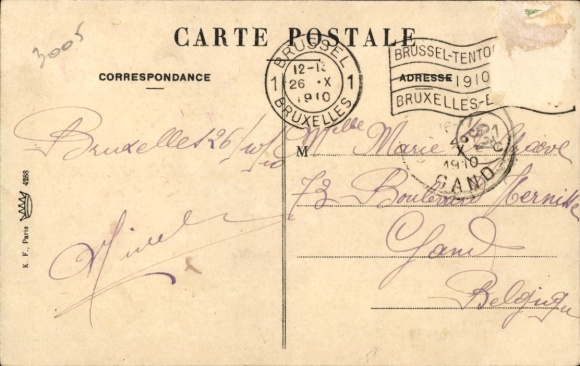 3005
CARTE POSTALE
CORRESPONDANCE
ADRESSE
BRUSSEL
12-1
26 X
1910
1 1
BRUXELLES
BRUSSEL-TENTO
1910
BRUXELLES-E
X
1910
GAND
Bruxelles 26/10/10
M
Mlle Marie
73 Boulevard
Gand
Belgique
K. F., Paris 4288